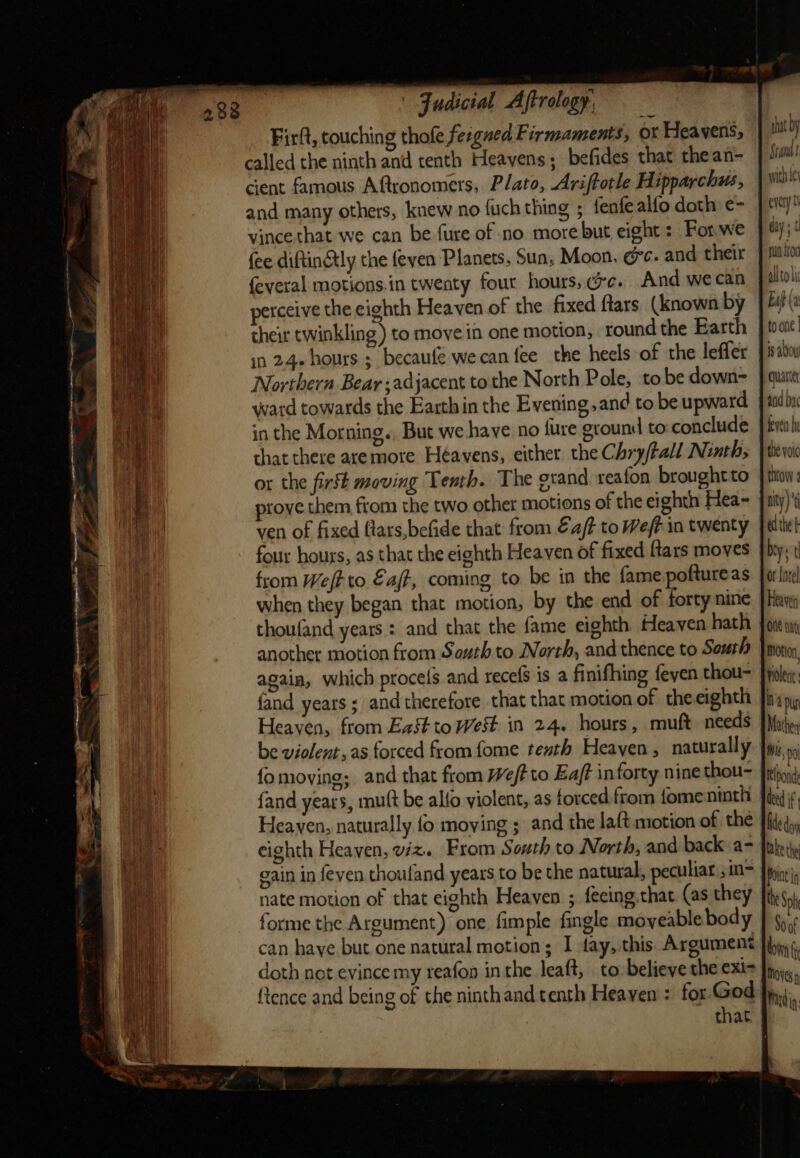 288 Judicial Aſtrology,
Firſt, touching thoſe feigned Firmaments, or Heavens,
called the ninth and tenth Heavens; beſides that the an-
cient famous Aſtronomers, Plato, Ariſtotle Hipparchus,
and many others, knew no ſuch thing ; ſenſe alſo doth e-
vince that we can be ſure of no more but eight : For we
ſee diſtinctly the ſeven Planets, Sun, Moon, &c. and their
ſeveral motions in twenty four hours, &c. And we can
perceive the eighth Heaven of the fixed ſtars (known by
their twinkling) to move in one motion, round the Earth
in 24. hours ; becauſe we can ſee the heels of the leſſer
Northern Bear; adjacent to the North Pole, to be down-
ward towards the Earth in the Evening, and to be upward
in the Morning. But we have no ſure ground to conclude
that there are more Heavens, either the Chryſtall Ninth,
or the firſt moving Tenth. The grand reaſon brought to
prove them, from the two other motions of the eighth Hea-
ven of fixed ſtars, beſide that from Eaſt to Weſt in twenty
four hours, as that the eighth Heaven of fixed ſtars moves
from Weſt to Eaſt, coming to be in the ſame poſture as
when they began that motion, by the end of forty nine
thouſand years : and that the ſame eighth Heaven hath
another motion from South to North, and thence to South
again, which proceſs and receſs is a finiſhing ſeven thou-
ſand years ; and therefore that that motion of the eighth
Heaven, from Eaſt to Weſt in 24. hours, muſt needs
be violent, as forced from ſome tenth Heaven, naturally
ſo moving; and that from Weſt to Eaſt in forty nine thou-
ſand years, muſt be alſo violent, as forced from ſome ninth
Heaven, naturally ſo moving ; and the laſt motion of the
eighth Heaven, viz. From South to North, and back a-
gain in ſeven thouſand years to be the natural, peculiar, in-
nate motion of that eighth Heaven ; ſeeing that (as they
forme the Argument) one ſimple ſingle moveable body
can have but one natural motion; I ſay, this Argument
doth not evince my reaſon in the leaſt, to believe the exi-
ſtence and being of the ninth and tenth Heaven : for God
that